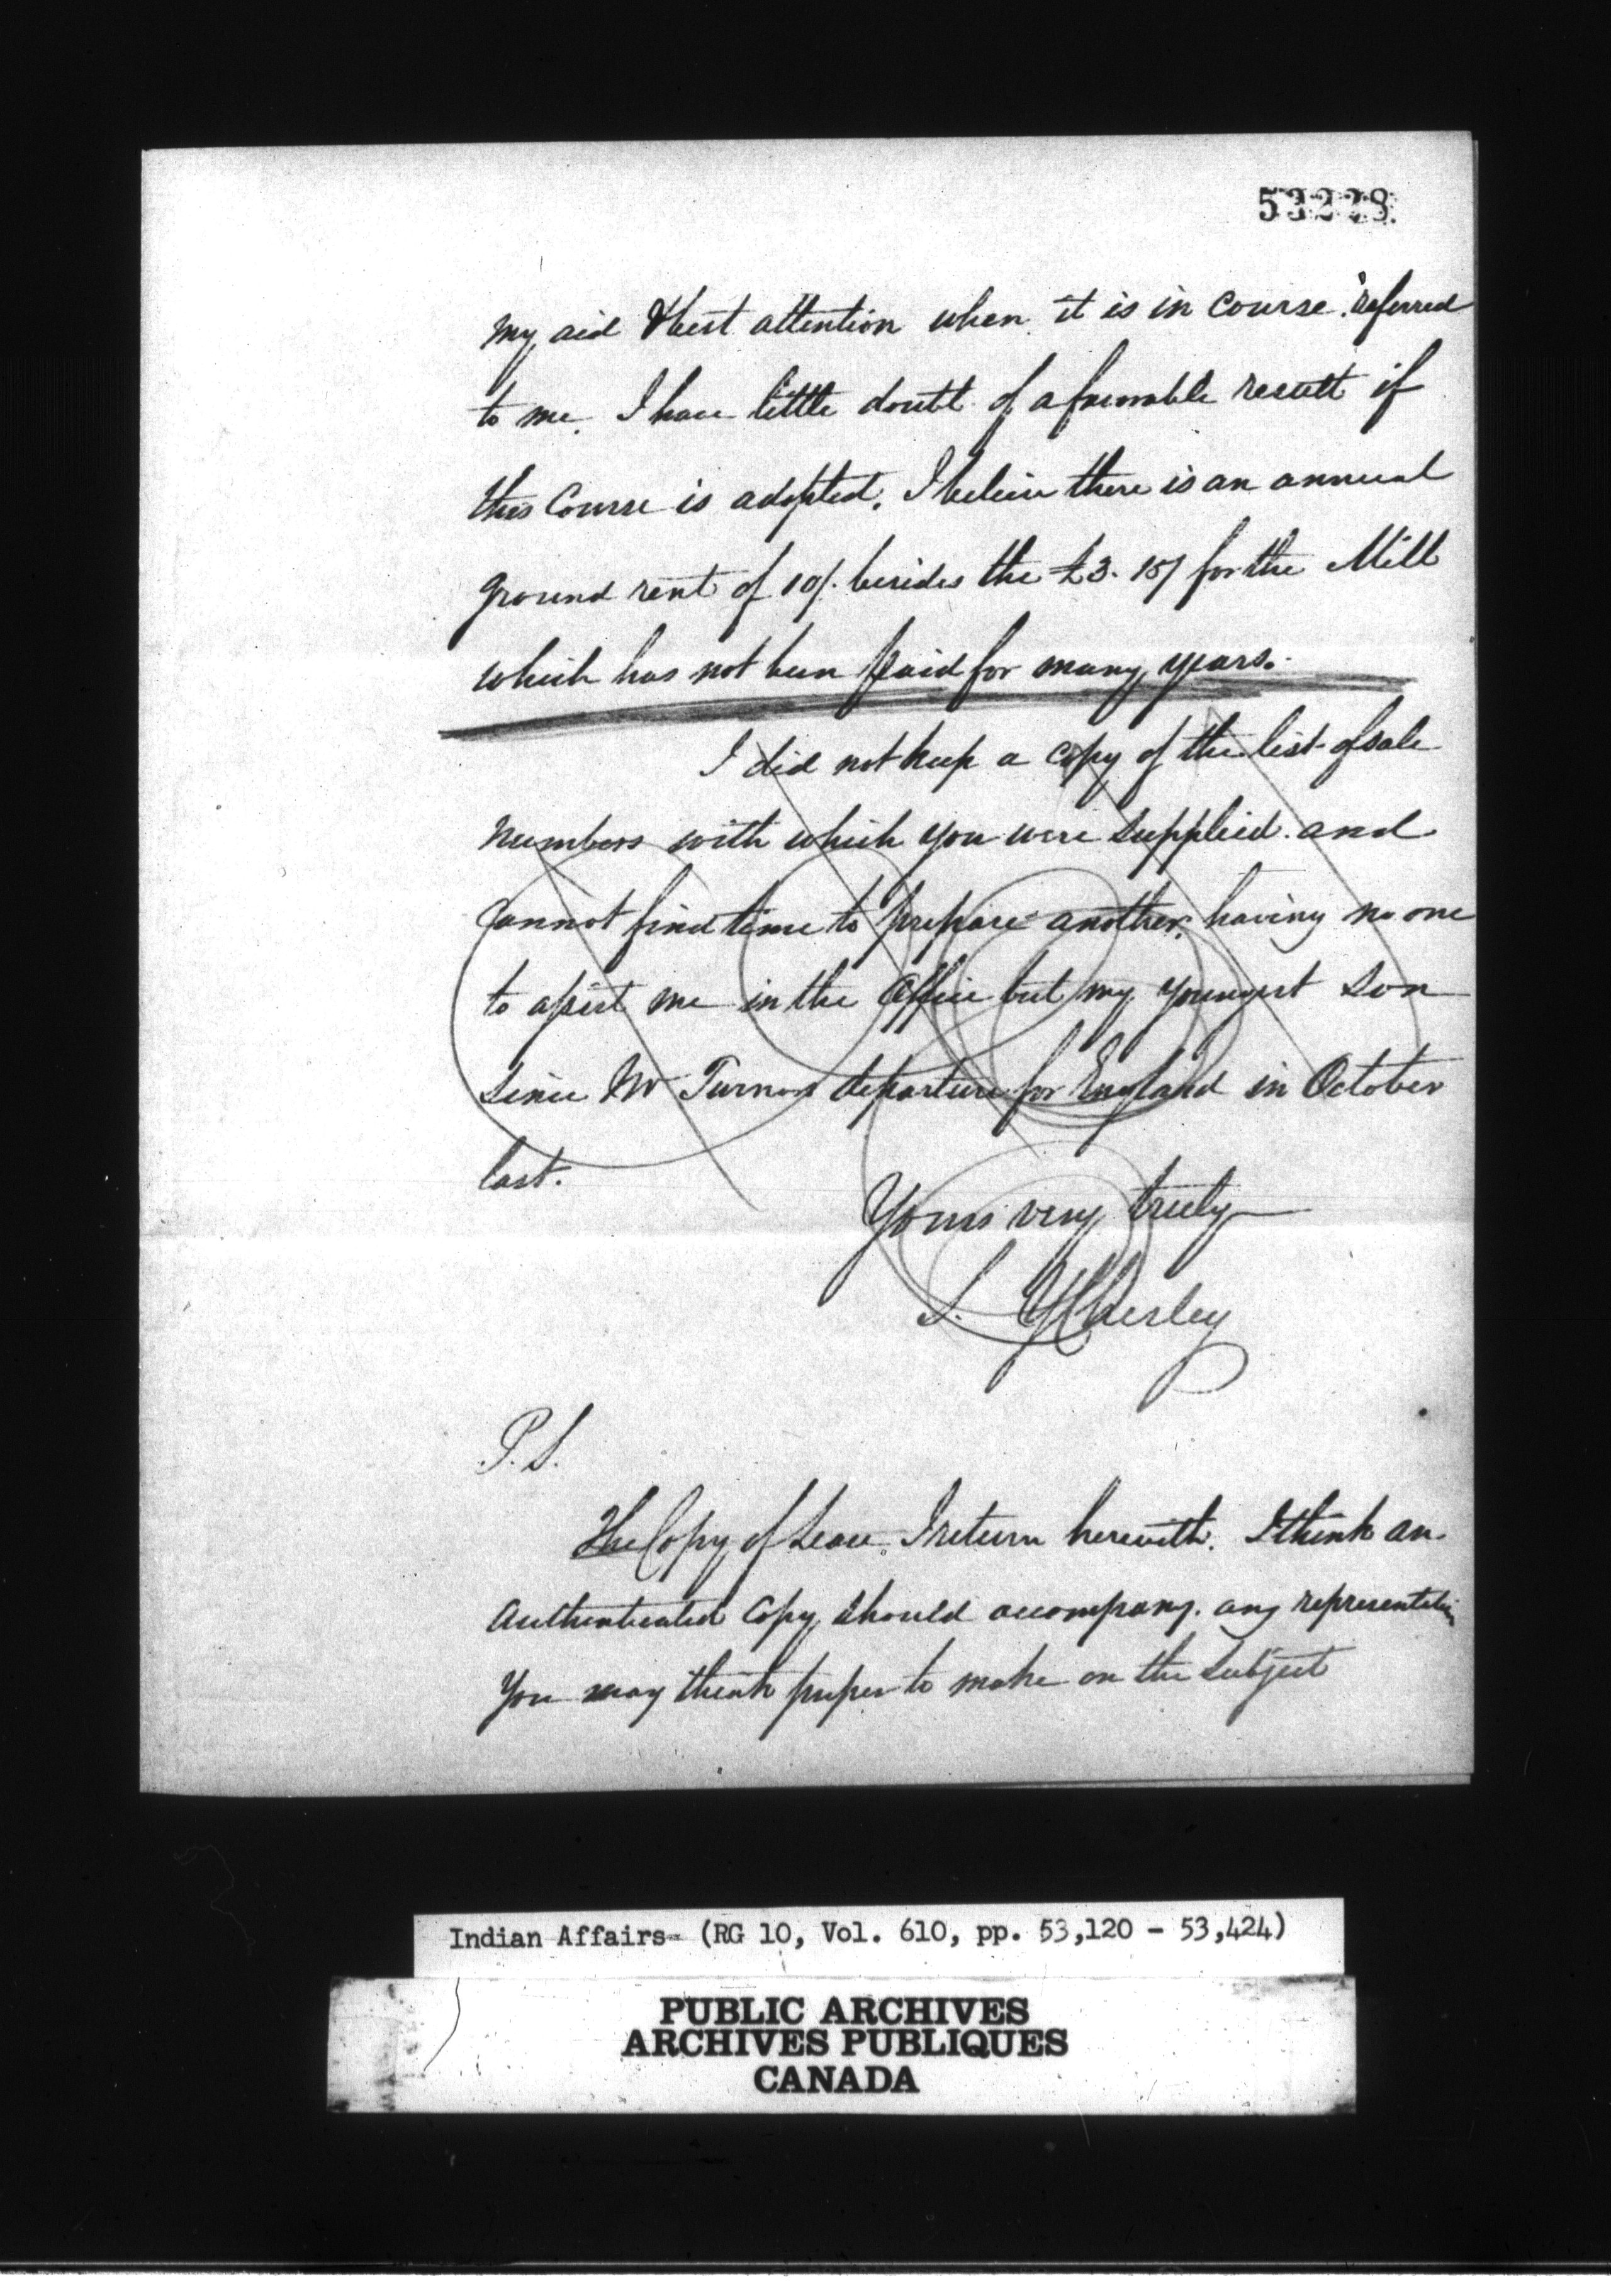 53228.
my aid & best attention when it is in course referred
to me. I have little doubt of a favorable result if
this Course is adopted. I believe there is an annual
ground rent of 10/. besides the £3. 15/ for the Mill
which has not been paid for many years.
I did not keep a copy of the list of sale
numbers with which you were supplied and
cannot find time to prepare another, having no one
to assist me in the Office but my youngest son
since Mr Turners departure for England in October
last.
Yours very truly
S. Y Chesley
P.S.
The Copy of Lease I return herewith. I think an
authenticated copy should accompany any representation
you may think proper to make on the subject
Indian Affairs- (RG 10, Vol. 610, pp. 53,120 - 53,424)
PUBLIC ARCHIVES
ARCHIVES PUBLIQUES
CANADA